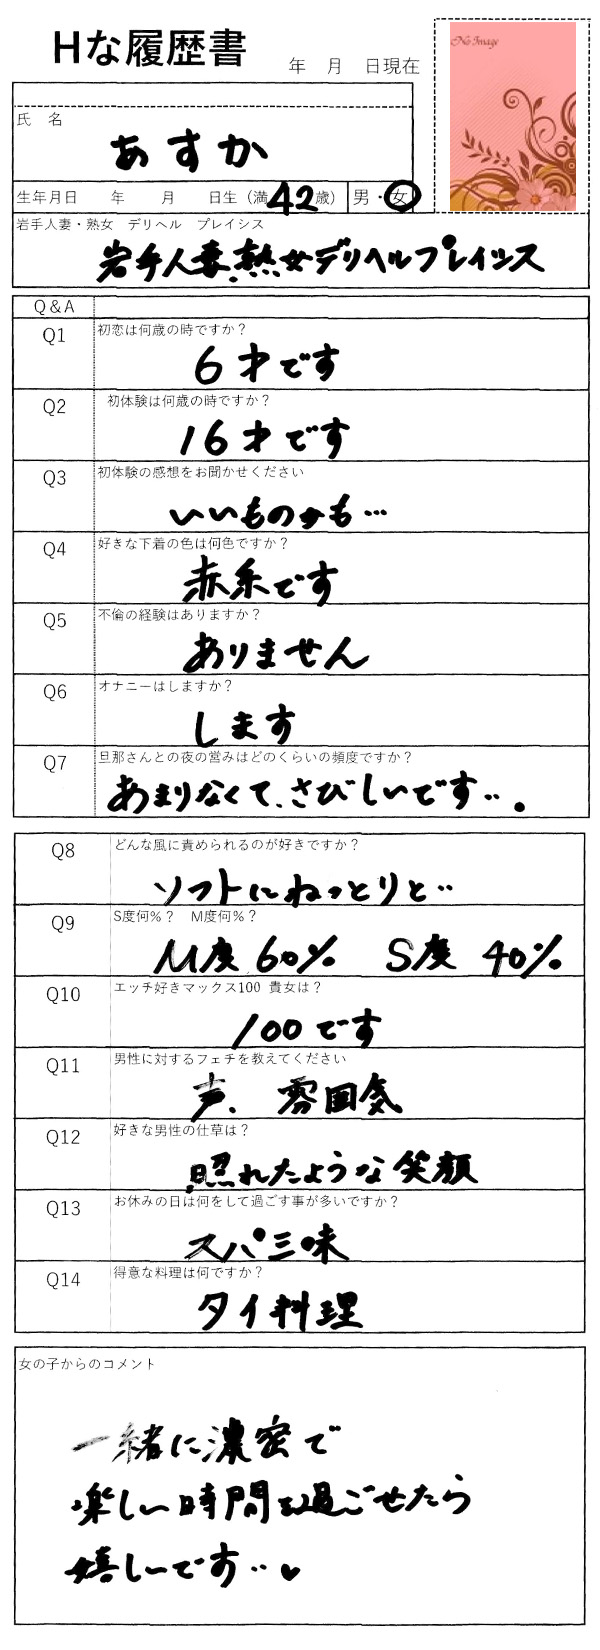 Hな履歴書
年 月 日現在
No Image
氏 名
あすか
生年月日 年 月 日生（満42歳） 男・女
岩手人妻・熟女 デリヘル プレイシス
岩手人妻・熟女デリヘルプレイシス
Q&A
Q1 初恋は何歳の時ですか？
6才です
Q2 初体験は何歳の時ですか？
16才です
Q3 初体験の感想をお聞かせください
いいものかも…
Q4 好きな下着の色は何色ですか？
赤系です
Q5 不倫の経験はありますか？
ありません
Q6 オナニーはしますか？
します
Q7 旦那さんとの夜の営みはどのくらいの頻度ですか？
あまりなくて、さびしいです…。
Q8 どんな風に責められるのが好きですか？
ソフトにねっとりと…
Q9 S度何%？ M度何%？
M度 60% S度 40%
Q10 エッチ好きマックス100 貴女は？
100です
Q11 男性に対するフェチを教えてください
声、雰囲気
Q12 好きな男性の仕草は？
照れたような笑顔
Q13 お休みの日は何をして過ごす事が多いですか？
スパ三昧
Q14 得意な料理は何ですか？
タイ料理
女の子からのコメント
一緒に濃密で
楽しい時間を過ごせたら
嬉しいです…♥